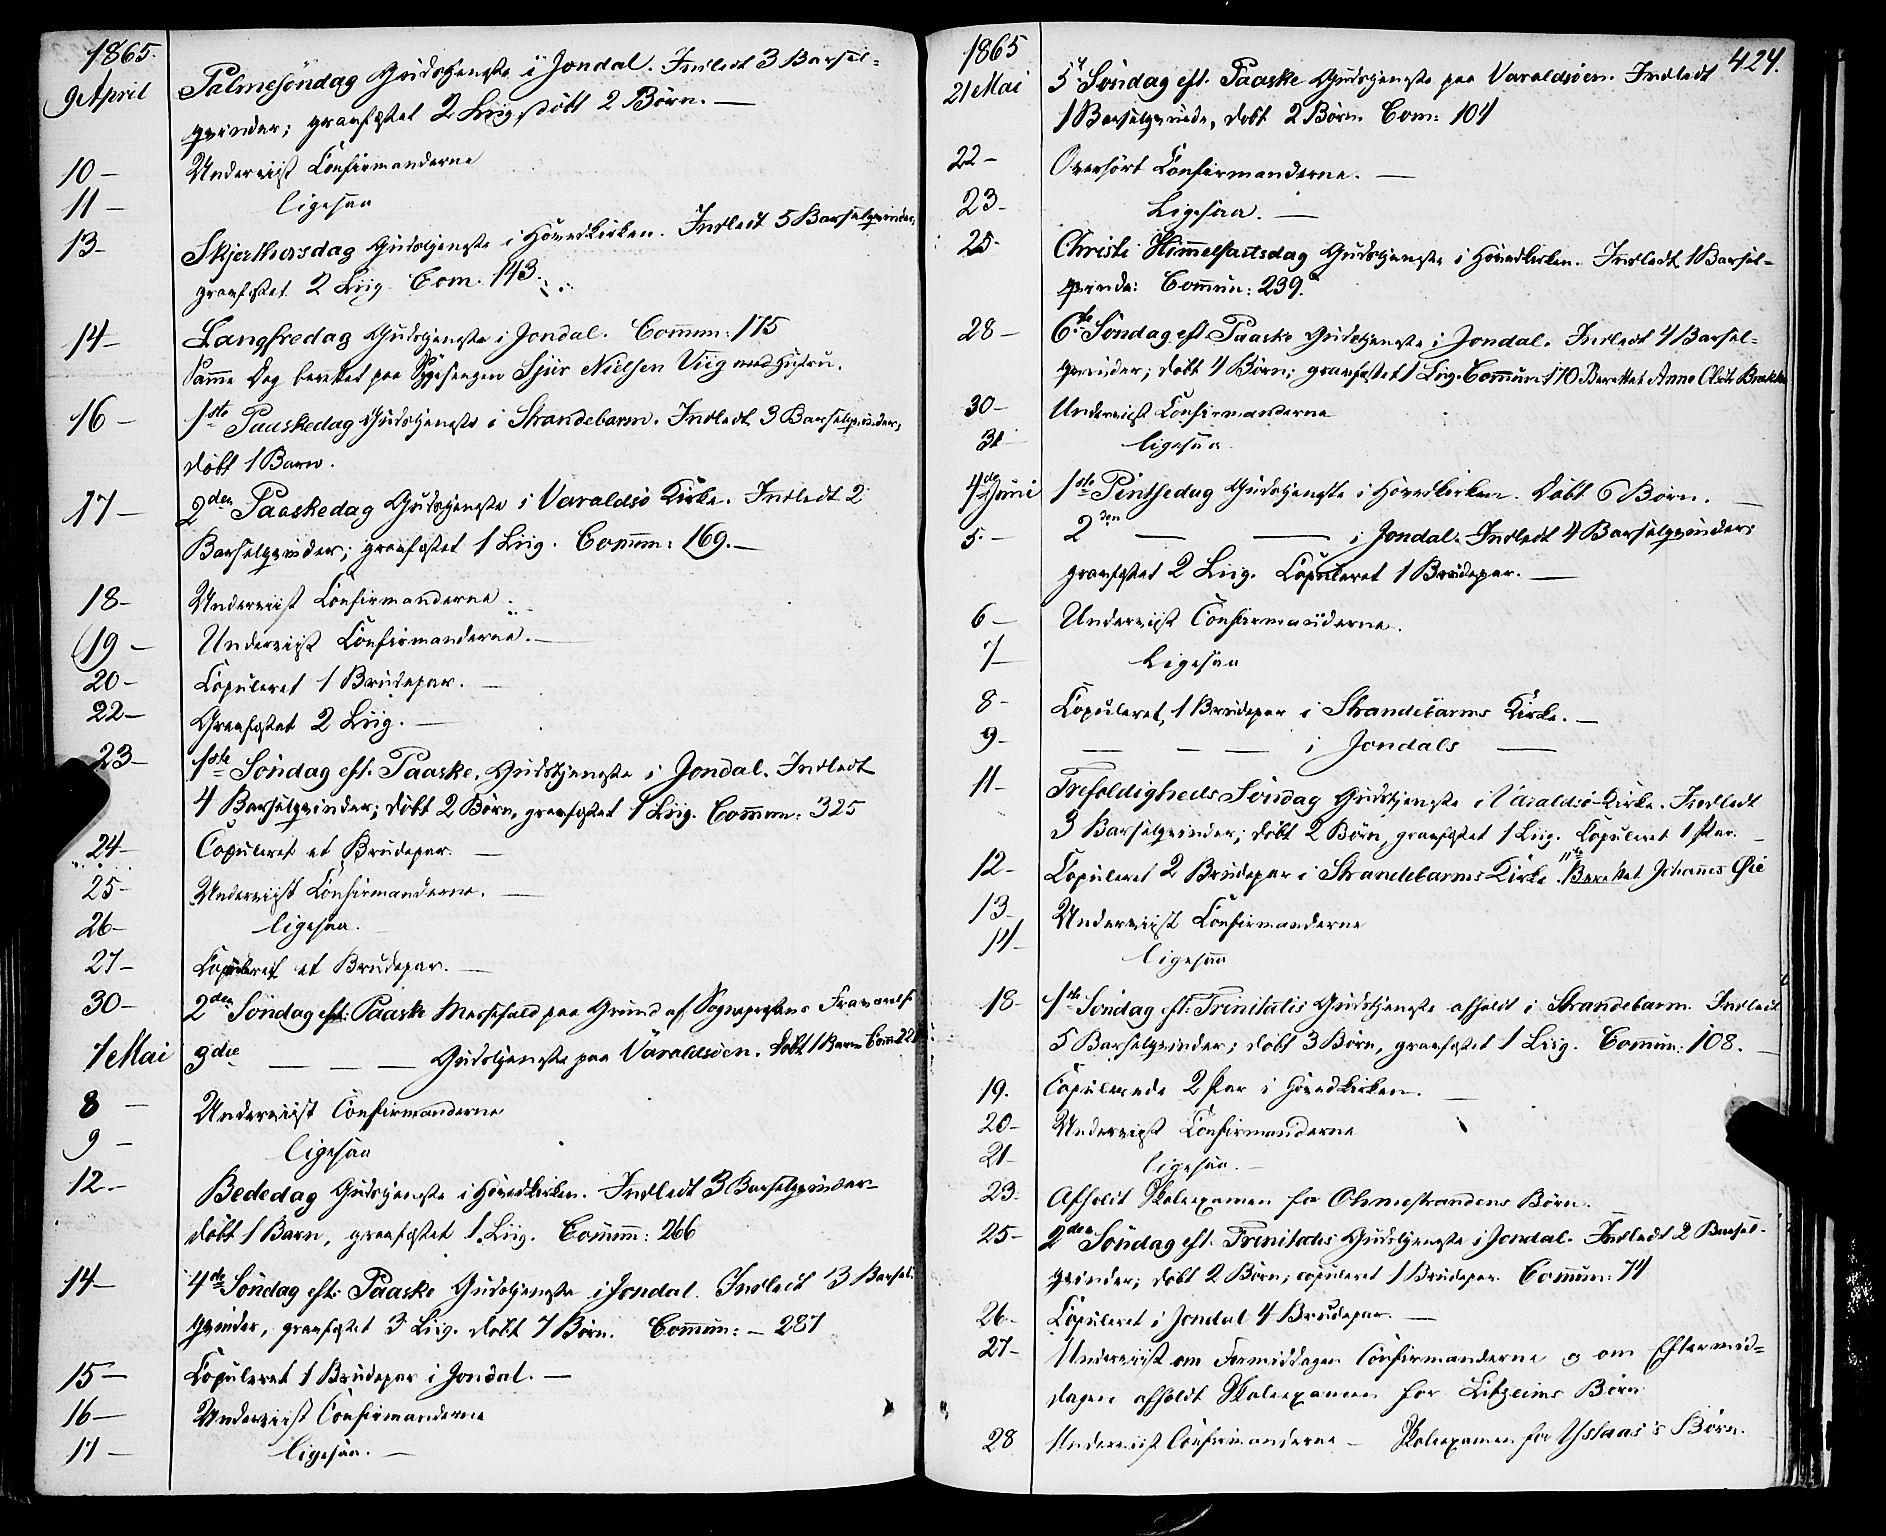 1865.
9 April Palmesöndag Gudstjeneste i Jondal. Indledt 3 Barsel-
qvinder; graafæstet 2 Liig, döbt 2 Börn. —
10 — Underviist Confirmanderne
11 — ligesaa
13 — Skjerthorsdag Gudstjeneste i Hovedkirken. Indledt 5 Barselqvinder,
graafæstet 2 Liig Com. 143
14 — Langfredag Gudstjeneste i Jondal. Commun: 175
Samme Dag berettet paa Sygesengen Sjur Nielsen Viig med Hustru.
16 — 1ste Paaskedag Gudstjeneste i Strandebarm. Indledt 3 Barselqvinder,
döbt 1 Barn.
17 — 2den Paaskedag Gudstjeneste i Varaldsö Kirke. Indledt 2
Barselqvinder; graafæstet 1 Liig. Commun: 169. —
18 — Underviist Confirmanderne.
19 — Underviist Confirmanderne. —
20 — Copuleret 1 Brudepar. —
22 — Graafæstet 2 Liig. —
23 — 1ste Söndag eft. Paaske, Gudstjeneste i Jondal. Indledt
4 Barselqvinder; döbt 2 Börn, graafæstet 1 Liig. Commun: 325
24 — Copuleret et Brudepar. —
25 — Underviist Confirmanderne. —
26 — ligesaa.
27 — Copuleret et Brudepar. —
30 — 2den Söndag eft: Paaske Messefald paa Grund af Sognepræstens Fraværelse
7 Mai 3die — — — Gudstjeneste paa Varaldsöen. döbt 1 Barn
8 — Underviist Confirmanderne
9 — ligesaa
12 — Bededag Gudstjeneste i Hovedkirken. Indledt 3 Barselqvinder
döbt 1 Barn, graafæstet 1 Liig. Commun: 266
14 — 4de Söndag eft: Paaske Gudstjeneste i Jondal. Indledt 3 Barsel-
qvinder, graafæstet 3 Liig. döbt 7 Börn. Commun: — 287
15 — Copuleret 1 Brudepar i Jondal. —
16 — Underviist Confirmanderne
17 — ligesaa. —
424.
1865
21 Mai 5te Söndag eft. Paaske Gudstjeneste paa Varaldsöen. Indledt
1 Barselqvinde, döbt 2 Börn Com: 104
22 — Overhört Confirmanderne. —
23 — Ligesaa. —
25 — Christi Himmelfartsdag Gudstjeneste i Hovedkirken. Indledt 1 Barsel-
qvinde: Commun: 239.
28 — 6te Söndag eft Paaske Gudstjeneste i Jondal. Indledt 4 Barsel-
qvinder; döbt 4 Börn; graafæstet 1 Liig. Commun 170 Berettet Anne
30 — Underviist Confirmanderne
31 — ligesaa
4de Juni 1ste Pintsedag Gudstjeneste i Hovedkirken. Döbt 6 Börn. —
5. — 2den — — i Jondal. Indledt 4 Barselqvinder;
graafæstet 2 Liig. Copuleret 1 Brudepar. —
6 — Underviist Confirmanderne.
7 — Ligesaa
8 — Copuleret 1 Brudepar i Strandebarms Kirke. —
9 — — — — i Jondals —
11 — Trefoldigheds Söndag Gudstjeneste i Varaldsö Kirke. Indledt
3 Barselqvinder; döbt 2 Börn, graafæstet 1 Liig. Copuleret 1 Par. —
12 — Copuleret 2 Brudepar i Strandebarms Kirke. 11te Berettet Johannes Øie
13 — Underviist Confirmanderne
14 — ligesaa
18 — 1ste Söndag eft: Trinitatis Gudstjeneste afholdt i Strandebarm. Indledt
5 Barselqvinder; döbt 3 Börn, graafæstet 1 Liig. Commun: 108. —
19. Copulerede 2 Par i Hovedkirken. —
20 — Underviist Confirmanderne
21 — ligesaa. —
23 — Afholdt Skoleexamen for Ohmestrandens Börn.
25 — 2den Söndag eft. Trinitatis Gudstjeneste i Jondal. Indledt 2 Barsel-
qvinder; döbt 2 Börn; copuleret 1 Brudepar. Commun: 74
26 — Copuleret i Jondal 4 Brudepar. —
27 — Underviist om Formiddagen Confirmanderne og om Eftermid-
dagen afholdt Skoleexamen for Börn
28 Underviist Confirmanderne — Skoleexamen for Börn.